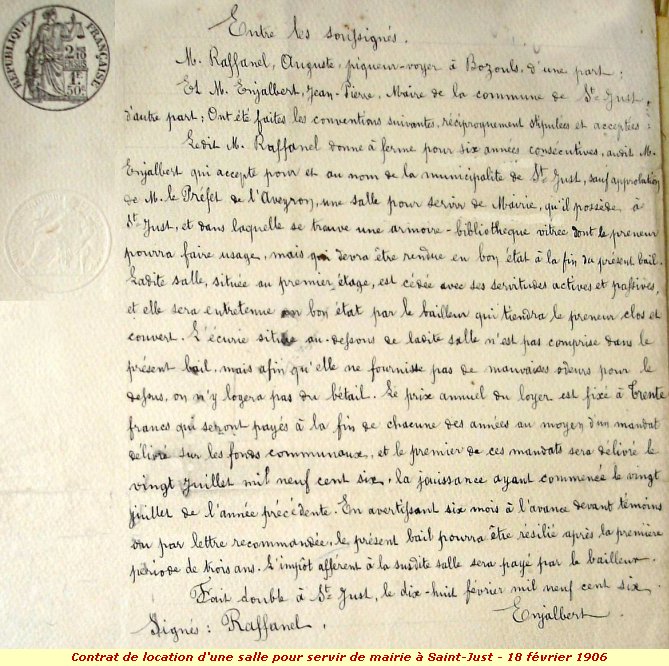 RÉPUBLIQUE FRANÇAISE
2/10 EN SUS
1F.
50c
Entre les soussignés.
M. Raffanel, Auguste, piqueur-voyer à Bozouls, d'une part ;
Et M. Enjalbert, Jean-Pierre, Maire de la commune de St Just,
d'autre part ; Ont été faites les conventions suivantes, réciproquement stipulées et acceptées :
Ledit M. Raffanel donne à ferme pour six années consécutives, audit M.
Enjalbert qui accepte pour et au nom de la municipalité de St Just, sauf approbation
de M. le Préfet de l'Aveyron, une salle pour servir de Mairie, qu'il possède à
St Just, et dans laquelle se trouve une armoire-bibliothèque vitrée dont le preneur
pourra faire usage, mais qui devra être rendue en bon état à la fin du présent bail.
Ladite salle, située au premier étage, est cédée avec ses servitudes actives et passives,
et elle sera entretenue en bon état par le bailleur qui tiendra le preneur clos et
couvert. L'écurie située au-dessous de ladite salle n'est pas comprise dans le
présent bail, mais afin qu'elle ne fournisse pas de mauvaises odeurs pour le
dessus, on n'y logera pas du bétail. Le prix annuel du loyer est fixé à Trente
francs qui seront payés à la fin de chacune des années au moyen d'un mandat
délivré sur les fonds communaux, et le premier de ces mandats sera délivré le
vingt juillet mil neuf cent six, la jouissance ayant commencé le vingt
juillet de l'année précédente. En avertissant six mois à l'avance devant témoins
ou par lettre recommandée, le présent bail pourra être résilié après la première
période de trois ans. L'impôt afférent à la susdite salle sera payé par le bailleur.
Fait double à St Just, le dix-huit février mil neuf cent six.
Signés : Raffanel, Enjalbert.
Contrat de location d'une salle pour servir de mairie à Saint-Just - 18 février 1906